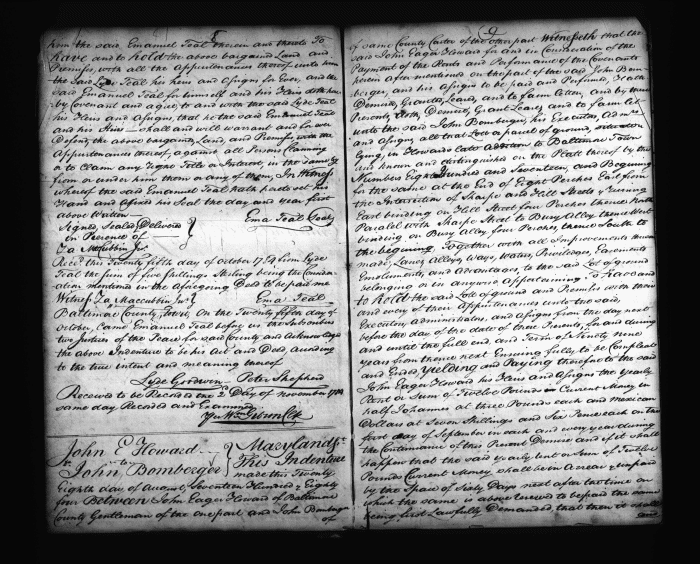 5
him the said Emanuel Teal therein and thereto To
have and to hold the above bargained Land and
Premises, with all the appurtenances thereof unto him
the said Lyde Teal his heirs and assigns for Ever, and the
said Emanuel Teal for himself and his Heirs doth here
by Covenant and agree, to and with the said Lyde Teal
his Heirs and assigns, that he the said Emanuel Teal
and his Heirs shall and will warrant and for ever
Defend, the above bargained Land, and Premises with the
Appurtenances thereof, against all Persons Claiming
or to Claim any Right Title or Interest, in the same by
from or under him them or any of them, In Witness
whereof the said Emanuel Teal hath hereto set his
Hand and affixed his Seal the day and year first
above Written
Signed, Sealed, Delivered
in Presence of
Za Maccubbin Jr.
Ema Teal Seal
Recd. this Twenty fifth day of October 1784 from Lyde
Teal the sum of five shillings Sterling being the Conside
ration mentioned in the aforegoing Deed to be paid me
Witness Za Maccubbin Junr. Ema Teal
Baltimore County, towit, On the Twenty fifth day of
October, Came Emanuel Teal before us the Subscribers
two Justices of the Peace for said County and Acknowledged
the above Indenture to be his Act and Deed, According
to the true intent and meaning thereof
Lyde Goodwin Peter Shepherd
Received to be Recorded the 2d Day of November 1784
same day Recorded and Examined
Wm Gibson Clk
John E Howard
to
John Bomberger
Maryland Sc
This Indenture
made this Twenty
Eighth day of August, Seventeen Hundred & Eighty
four Between John Eager Howard of Baltimore
County Gentleman of the one part and John Bomberger
of
of same County Carter of the other part Witnesseth that the
said John Eager Howard for and in Consideration of the
Payment of the Rents and Performance of the Covenants
herein after mentioned on the part of the said John Bom
berger, and his assigns to be paid and Performed, Hath
Demised, Granted, Leased, and to farm letten, and by these
Presents, doth, Demise, Grant Lease, and to farm let
unto the said John Bomberger, his Executors, Admrs
and assigns, all that Lott or parcel of ground,
lying, in Howards late Addition to Baltimore Town
and known and distinguished on the Platt thereof by the
Numbers Eight Hundred and Seventeen, and Beginning
for the same at the End of Eight Perches East from
the Intersection of Sharpe and Hill Streets & running
East bounding on Hill Street four Perches thence North
Paralel with Sharpe Street to Busy Alley, thence West
bending on Busy Alley four Perches, thence South to
the Beginning, Together with all Improvements
made, Lanes, Alleys, Ways, Waters, Priviledges, Easements
Emoluments, and advantages, to the said Lot of ground
belonging or in anywise Appertaining, To Have and
to hold the said Lott of ground and Premises with their
and every of their Appurtenances unto the said,
Executors, Administrators, and assigns from the day next
before the day of the date of these Presents, for and during
and untill the full end, and Term of Ninety nine
years from thence next Ensuing fully to be Compleat
and Ended, Yielding and Paying therefore to the said
John Eager Howard his Heirs and assigns the yearly
Rent or Sum of Twelve Pounds Current Money in
half Johannes at three Pounds each and mexican
Dollars at Seven Shillings and Six Pence each on the
first day of September in each and every year during
the Continuance of this Present Demise and if it shall
happen that the said yearly rent or Sum of Twelve
Pounds Current Money shall be in arrear & unpaid
by the Space of Sixty Days next after the time on
which the same is above reserved to be paid the same
being first Lawfully Demanded that then it shall
and